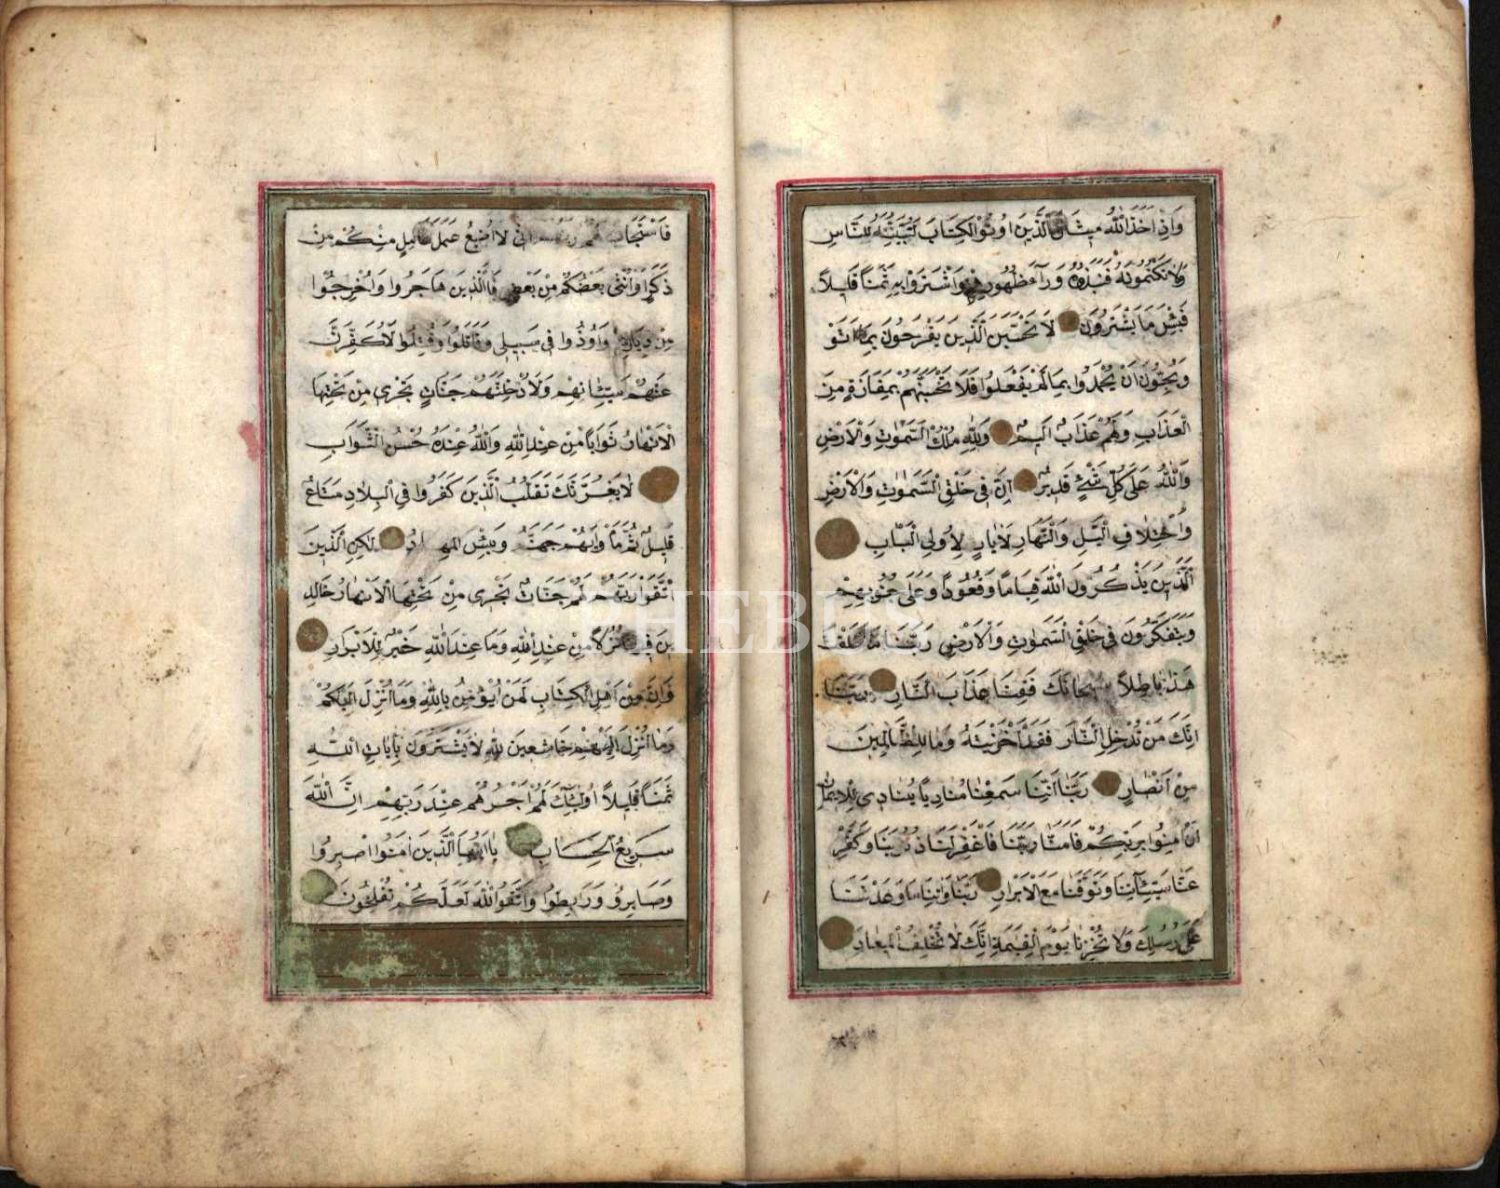 وَاِذْ اَخَذَ اللّٰهُ مِيثَاقَ الَّذِينَ اُوتُوا الْكِتَابَ لَتُبَيِّنُنَّهُ لِلنَّاسِ
وَلَا تَكْتُمُونَهُ فَنَبَذُوهُ وَرَآءَ ظُهُورِهِمْ وَاشْتَرَوْا بِهِ ثَمَنًا قَلِيلًا
فَبِئْسَ مَا يَشْتَرُونَ لَا تَحْسَبَنَّ الَّذِينَ يَفْرَحُونَ بِمَا اَتَوْا
وَيُحِبُّونَ اَنْ يُحْمَدُوا بِمَا لَمْ يَفْعَلُوا فَلَا تَحْسَبَنَّهُمْ بِمَفَازَةٍ مِنَ
الْعَذَابِ وَلَهُمْ عَذَابٌ اَلِيمٌ وَلِلّٰهِ مُلْكُ السَّمٰوَاتِ وَالْاَرْضِ
وَاللّٰهُ عَلٰى كُلِّ شَيْءٍ قَدِيرٌ اِنَّ فِي خَلْقِ السَّمٰوَاتِ وَالْاَرْضِ
وَاخْتِلَافِ الَّيْلِ وَالنَّهَارِ لَاٰيَاتٍ لِاُولِي الْاَلْبَابِ
اَلَّذِينَ يَذْكُرُونَ اللّٰهَ قِيَامًا وَقُعُودًا وَعَلٰى جُنُوبِهِمْ
وَيَتَفَكَّرُونَ فِي خَلْقِ السَّمٰوَاتِ وَالْاَرْضِ رَبَّنَا مَا خَلَقْتَ
هٰذَا بَاطِلًا سُبْحَانَكَ فَقِنَا عَذَابَ النَّارِ رَبَّنَا
اِنَّكَ مَنْ تُدْخِلِ النَّارَ فَقَدْ اَخْزَيْتَهُ وَمَا لِلظَّالِمِينَ
مِنْ اَنْصَارٍ رَبَّنَا اِنَّنَا سَمِعْنَا مُنَادِيًا يُنَادِي لِلْاِيمَانِ
اَنْ اٰمِنُوا بِرَبِّكُمْ فَاٰمَنَّا رَبَّنَا فَاغْفِرْ لَنَا ذُنُوبَنَا وَكَفِّرْ
عَنَّا سَيِّئَاتِنَا وَتَوَفَّنَا مَعَ الْاَبْرَارِ رَبَّنَا وَاٰتِنَا مَا وَعَدْتَنَا
عَلٰى رُسُلِكَ وَلَا تُخْزِنَا يَوْمَ الْقِيٰمَةِ اِنَّكَ لَا تُخْلِفُ الْمِيعَادَ
فَاسْتَجَابَ لَهُمْ رَبُّهُمْ اَنِّي لَا اُضِيعُ عَمَلَ عَامِلٍ مِنْكُمْ مِنْ
ذَكَرٍ اَوْ اُنْثٰى بَعْضُكُمْ مِنْ بَعْضٍ فَالَّذِينَ هَاجَرُوا وَاُخْرِجُوا
مِنْ دِيَارِهِمْ وَاُوذُوا فِي سَبِيلِي وَقَاتَلُوا وَقُتِلُوا لَاُكَفِّرَنَّ
عَنْهُمْ سَيِّئَاتِهِمْ وَلَاُدْخِلَنَّهُمْ جَنَّاتٍ تَجْرِي مِنْ تَحْتِهَا
الْاَنْهَارُ ثَوَابًا مِنْ عِنْدِ اللّٰهِ وَاللّٰهُ عِنْدَهُ حُسْنُ الثَّوَابِ
لَا يَغُرَّنَّكَ تَقَلُّبُ الَّذِينَ كَفَرُوا فِي الْبِلَادِ مَتَاعٌ
قَلِيلٌ ثُمَّ مَاْوٰيهُمْ جَهَنَّمُ وَبِئْسَ الْمِهَادُ لٰكِنِ الَّذِينَ
اتَّقَوْا رَبَّهُمْ لَهُمْ جَنَّاتٌ تَجْرِي مِنْ تَحْتِهَا الْاَنْهَارُ خَالِدِ
ينَ فِيهَا نُزُلًا مِنْ عِنْدِ اللّٰهِ وَمَا عِنْدَ اللّٰهِ خَيْرٌ لِلْاَبْرَارِ
وَاِنَّ مِنْ اَهْلِ الْكِتَابِ لَمَنْ يُؤْمِنُ بِاللّٰهِ وَمَا اُنْزِلَ اِلَيْكُمْ
وَمَا اُنْزِلَ اِلَيْهِمْ خَاشِعِينَ لِلّٰهِ لَا يَشْتَرُونَ بِاٰيَاتِ اللّٰهِ
ثَمَنًا قَلِيلًا اُولٰئِكَ لَهُمْ اَجْرُهُمْ عِنْدَ رَبِّهِمْ اِنَّ اللّٰهَ
سَرِيعُ الْحِسَابِ يَا اَيُّهَا الَّذِينَ اٰمَنُوا اصْبِرُوا
وَصَابِرُوا وَرَابِطُوا وَاتَّقُوا اللّٰهَ لَعَلَّكُمْ تُفْلِحُونَ